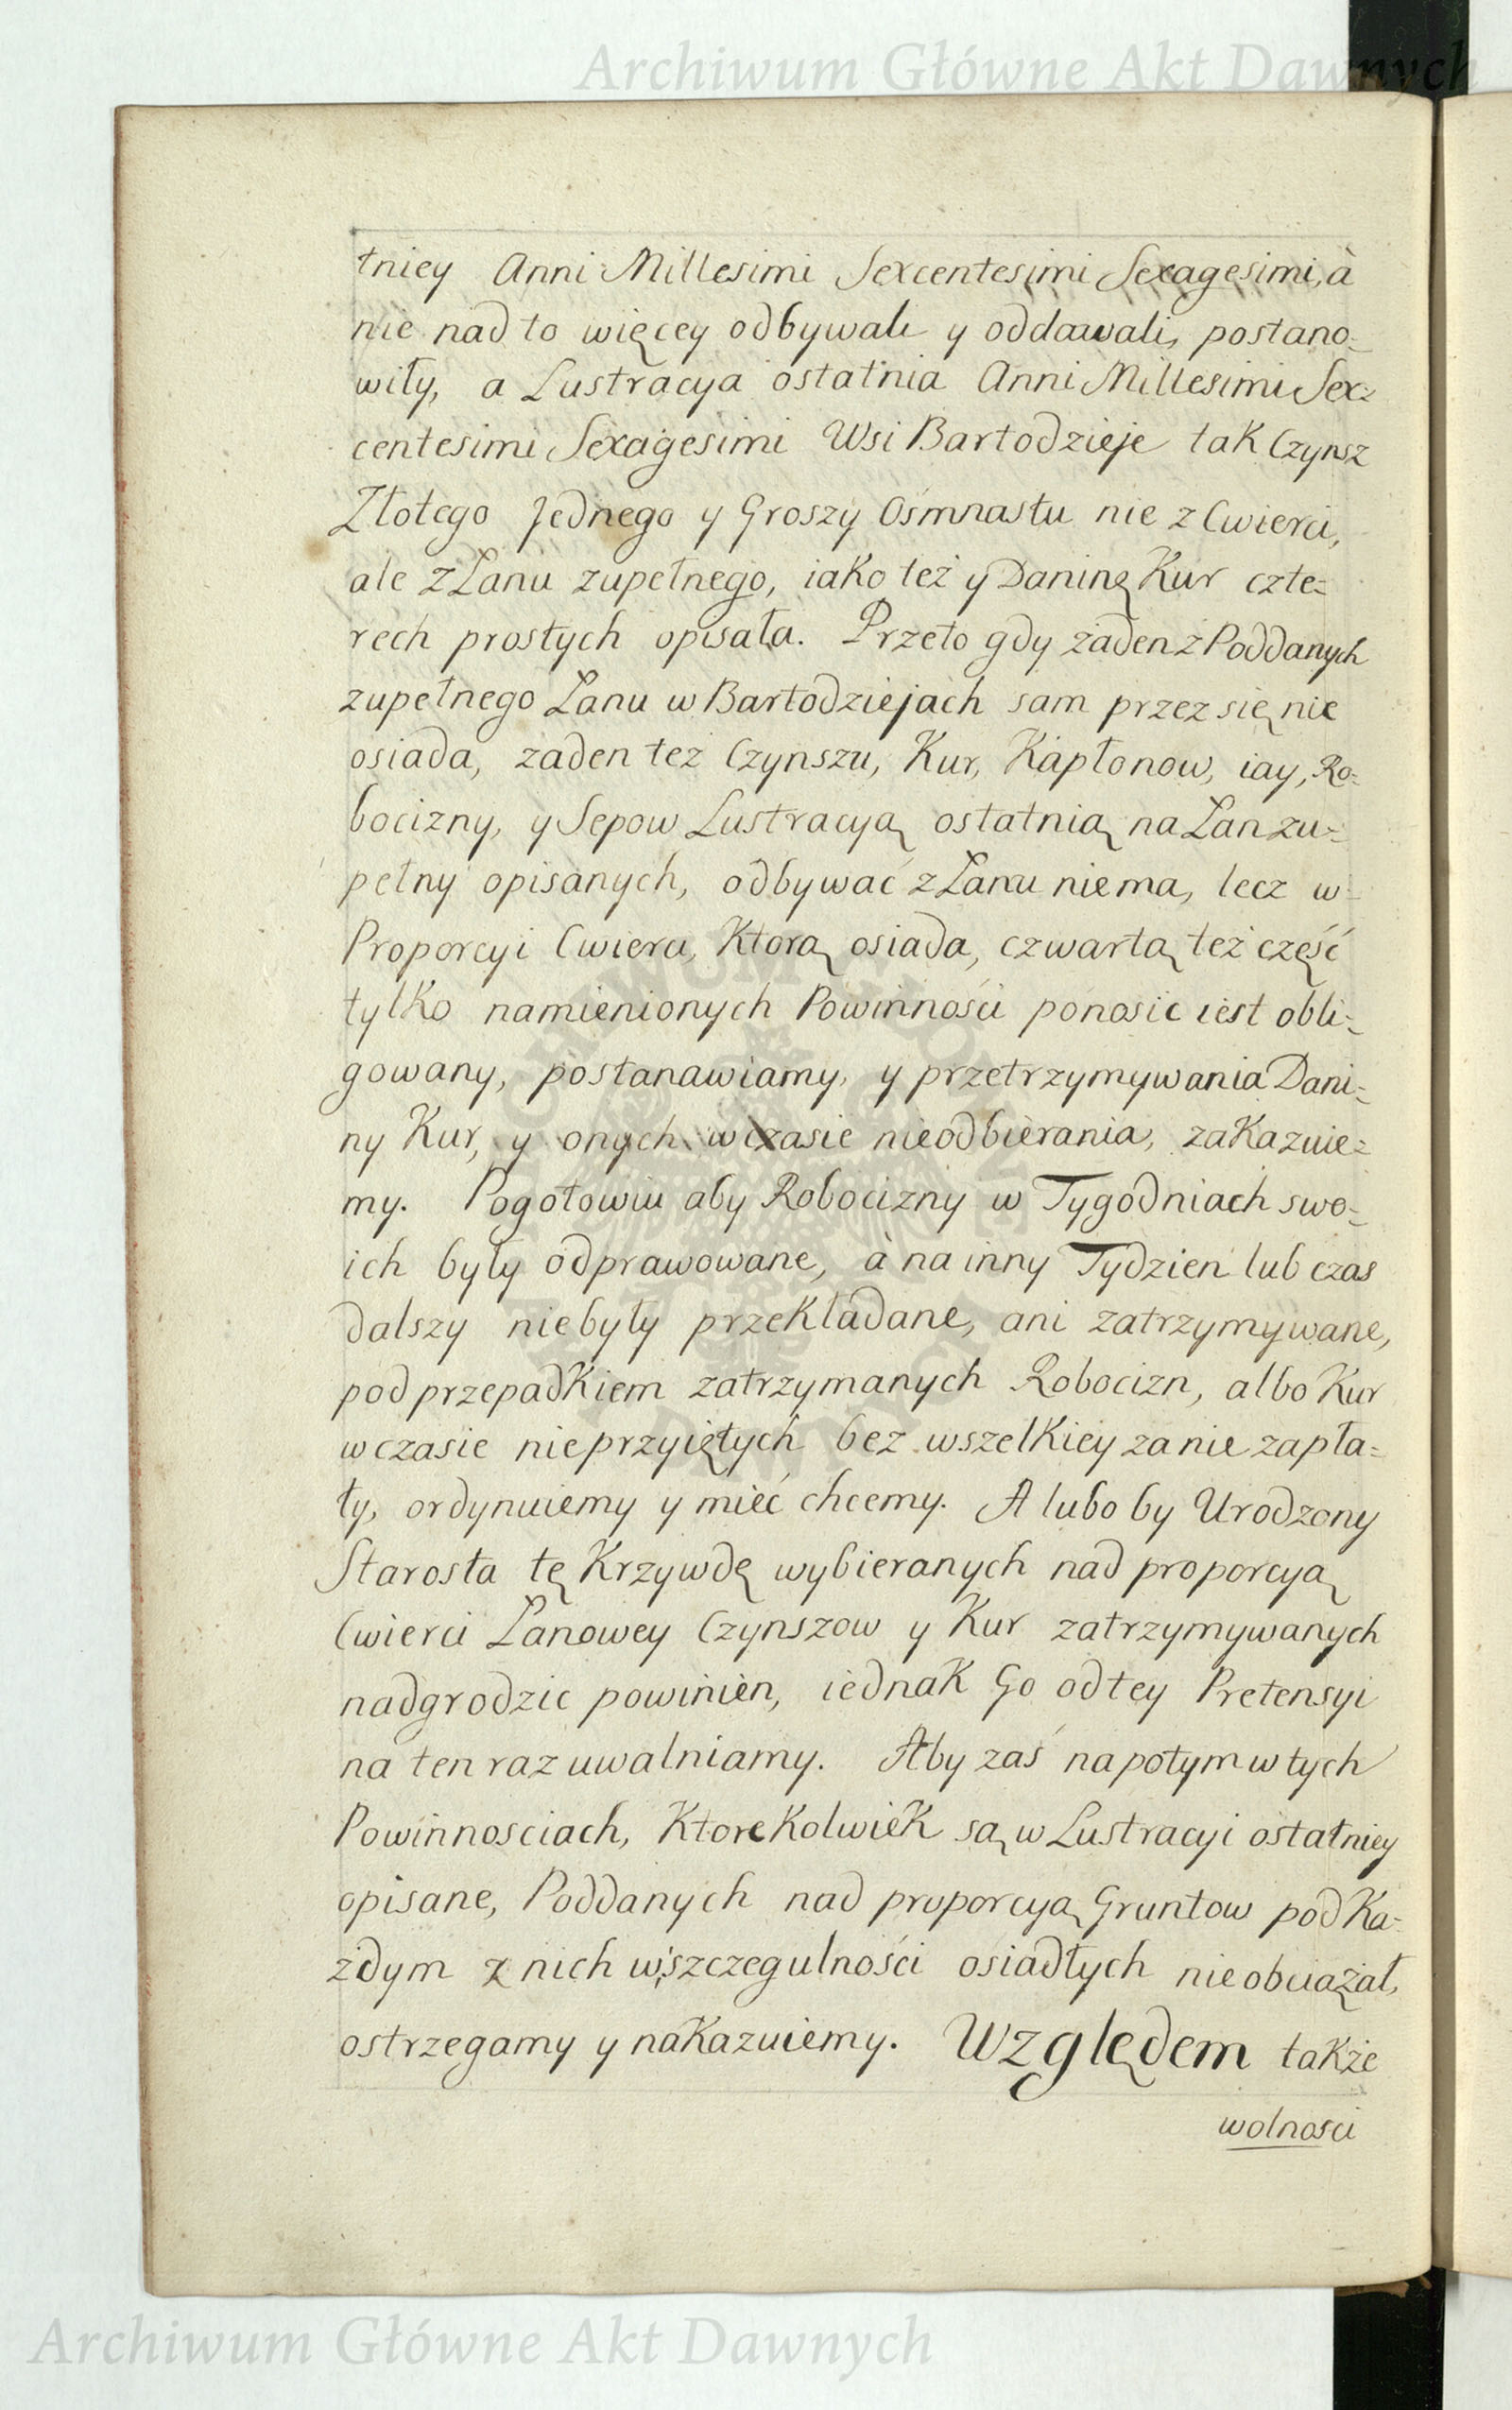 Archiwum Główne Akt Dawnych
tniey Anni Millesimi Sexcentesimi Sexagesimi, à
nie nad to więcey odbywali y oddawali, postano-
wiły, a Lustracya ostatnia Anni Millesimi Sex-
centesimi Sexagesimi Wsi Bartodzieje tak Czynsz
Złotego Jednego y Groszy Ośmnastu nie z Cwierci,
ale z Łanu zupełnego, iako też y Daninę Kur czte-
rech prostych opisała. Przeto gdy żaden z Poddanych
zupełnego Łanu w Bartodziejach sam przez się nie
osiada, żaden też Czynszu, Kur, Kapłonow, iay, Ro-
bocizny, y Sepow Lustracyą ostatnią na Łan zu-
pełny opisanych, odbywać z Łanu niema, lecz w
Proporcyi Cwierci, Ktorą osiada, czwartą też część
tylko namienionych Powinności ponosic iest obli-
gowany, postanawiamy, y przetrzymywania Dani-
ny Kur, y onych w czasie nieodbierania, zakazuie-
my. Pogotowiu aby Robocizny w Tygodniach swo-
ich były odprawowane, à na inny Tydzień lub czas
dalszy niebyły przekładane, ani zatrzymywane,
pod przepadkiem zatrzymanych Robocizn, albo Kur
w czasie nieprzyiętych bez wszelkiey za nie zapła-
ty, ordynuiemy y mieć chcemy. A lubo by Urodzony
Starosta tę Krzywdę wybieranych nad proporcyą
Cwierci Łanowey Czynszow y Kur zatrzymywanych
nadgrodzic powinien, iednak Go od tey Pretensyi
na ten raz uwalniamy. Aby zaś napotym w tych
Powinnosciach, Ktorekolwiek są w Lustracyi ostatniey
opisane, Poddanych nad proporcyą Gruntow pod Ka-
żdym z nich w szczegulności osiadłych nieobciążał,
ostrzegamy y nakazuiemy. Względem także
wolnosci
Archiwum Główne Akt Dawnych